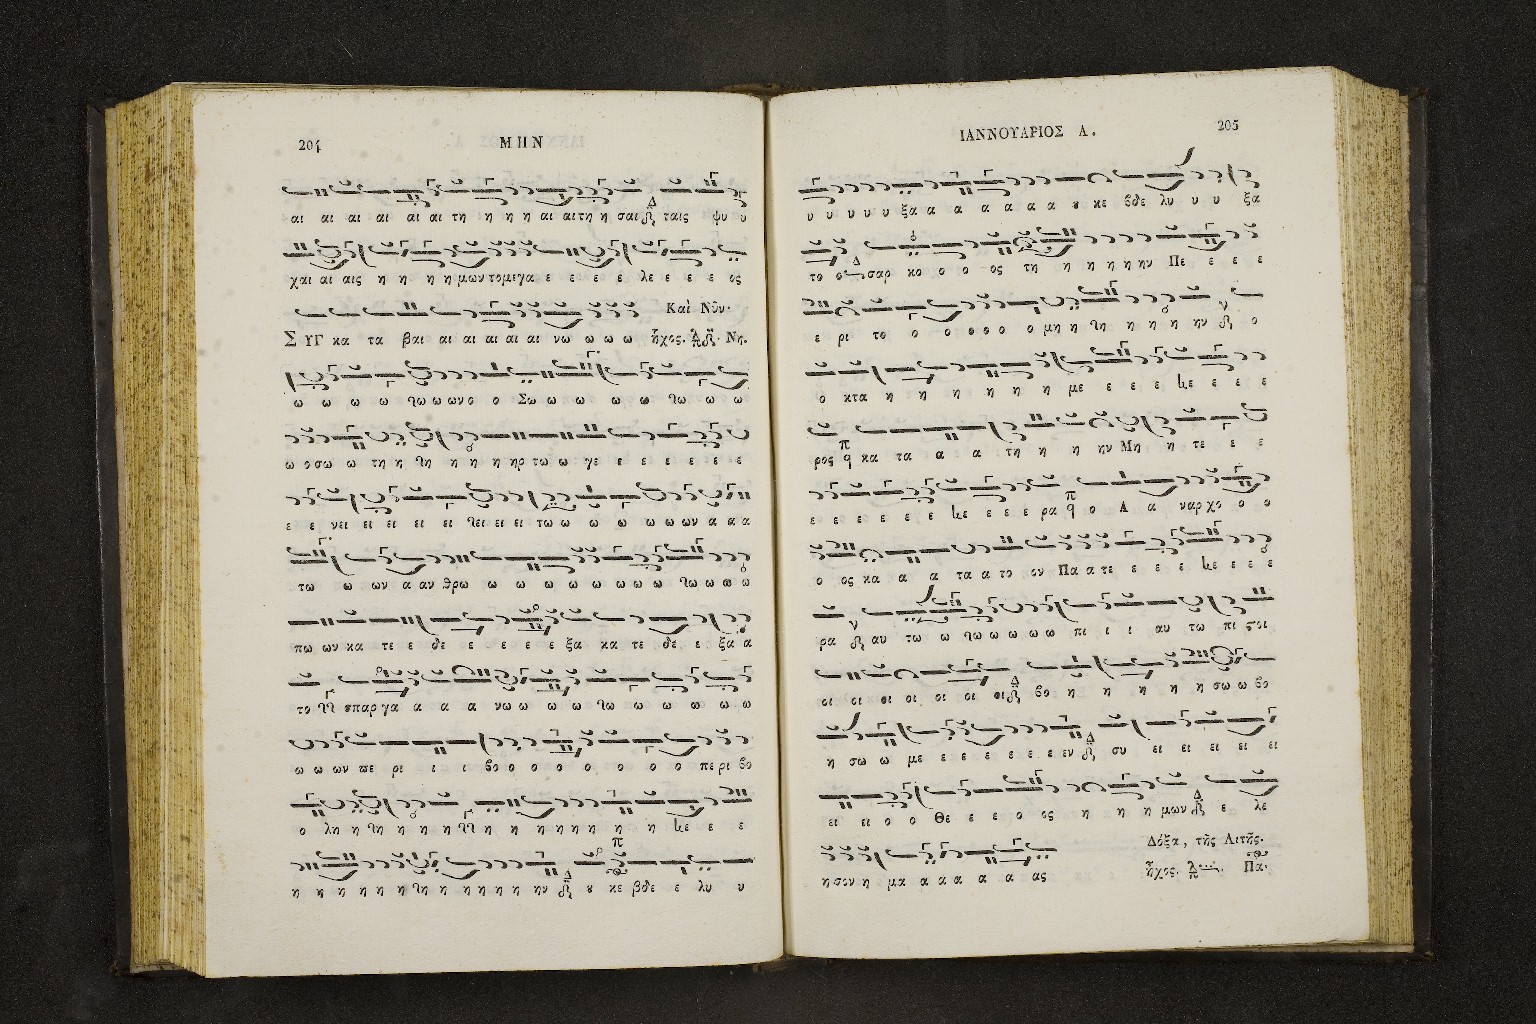 204 ΜΗΝ
αι αι αι αι αι αι τη η η η αι αι τη η σαι ταις ψυ υ
χαι αι αις η η η μων το μεγα ε ε ε ε λε ε ε ε ος
Καὶ Νῦν·
ΣΥΓ κα τα βαι αι αι αι αι αι νω ω ω ω ἦχος. Νη.
ω ω ω ω ω ω ων ο ο Σω ω ω ω ω ω ω ω
ω ο σω ω τη η η η η η ηρ τω ω γε ε ε ε ε ε ε
ε ε νει ει ει ει ει ει ει ει τω ω ω ω ω ω ων α α α
τω ω ων α αν θρω ω ω ω ω ω ω ω ω ω ω ω
πω ων κα τε ε δε ε ε ε ε ξα κα τε δε ε ξα α
το σπαρ γα α α α νω ω ω ω ω ω ω ω ω
ω ω ων πε ρι ι ι βο ο ο ο ο ο ο ο πε ρι βο
ο λη η η η η η η η η η η η η η ε ε ε
η η η η η η η η η η η η ην ου κε βδε ε λυ υ
ΙΑΝΝΟΥΑΡΙΟΣ Α. 205
υ υ υ υ υ ξα α α α α α α α ου κε βδε λυ υ υ ξα
το ο σαρ κο ο ο ος τη η η η η ην Πε ε ε ε
ε ρι το ο ο ο ο ο ο μη η η η η η ην ο
ο κτα η η η η η η με ε ε ε ε ε ε ε
ρος κα τα α α τη η η ην Μη η τε ε ε
ε ε ε ε ε ε ε ε ε ε ρα ο Α α ναρ χο ο ο
ο ος κα α α τα α το ον Πα α τε ε ε ε ε ε ε ε
ρα αυ τω ω ω ω ω ω ω πι ι ι αυ τω πι στοι
οι οι οι οι οι οι οι βο η η η η η σω ω βο
η σω ω με ε ε ε ε ε ε εν συ ει ει ει ει ει
ει ει ο ο Θε ε ε ο ος η η η μων ε λε
Δόξα, τῆς Λιτῆς.
η σον η μα α α α α α ας ἦχος. Πα.